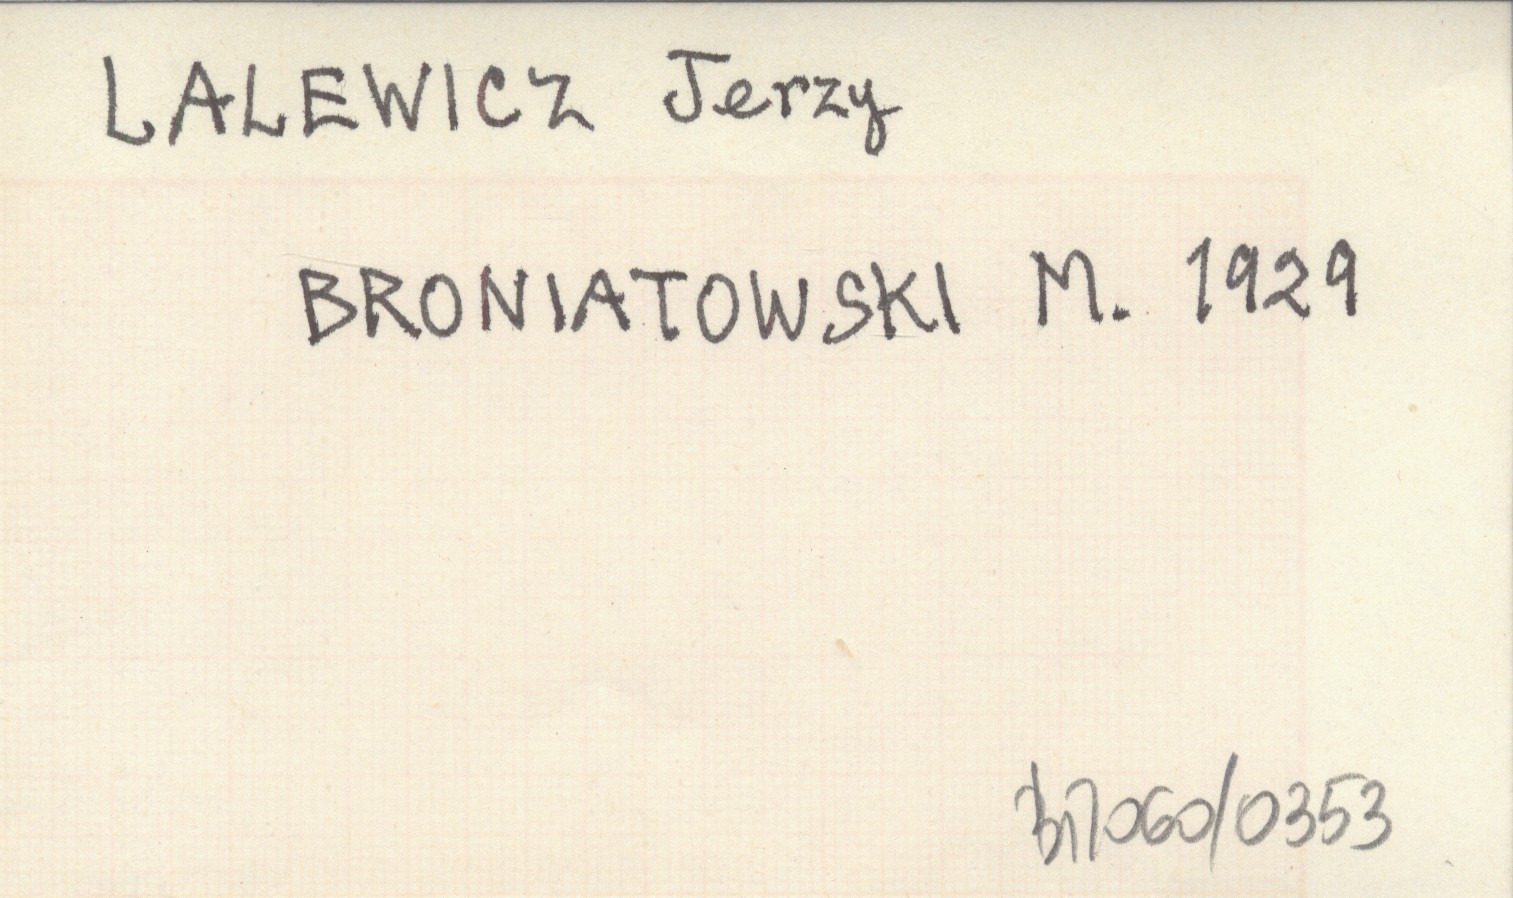 LALEWICZ Jerzy
BRONIATOWSKI M. 1929
060/0353